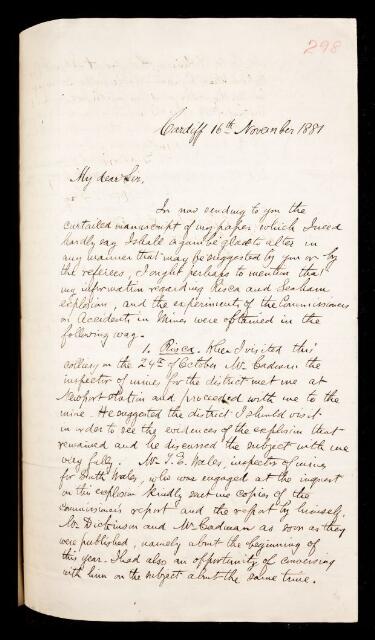 298
Cardiff 16th November 1881
My dear Sir,
In now sending to you the
curtailed manuscript of my paper, which I need
hardly say I shall again be glad to alter in
any manner that may be suggested by you or by
the referees, I ought perhaps to mention that
my information regarding Risca and Seaham
explosion, and the experiments of the Commissioners
on Accidents in Mines were obtained in the
following way.
1. Risca. When I visited this
colliery on the 24th of October Mr. Cadman the
inspector of mines for the district met me at
Newport station and proceeded with me to the
mine. He suggested the district I should visit
in order to see the evidences of the explosion that
remained and he discussed the subject with me
very fully. Mr. T. E. Wales, inspector of mines
for South Wales, who was engaged at the inquest
on this explosion kindly sent me copies of the
commissioner's report and the report by himself,
Mr. Dickinson and Mr. Cadman as soon as they
were published, namely about the beginning of
this year. I had also an opportunity of conversing
with him on the subject about the same time.